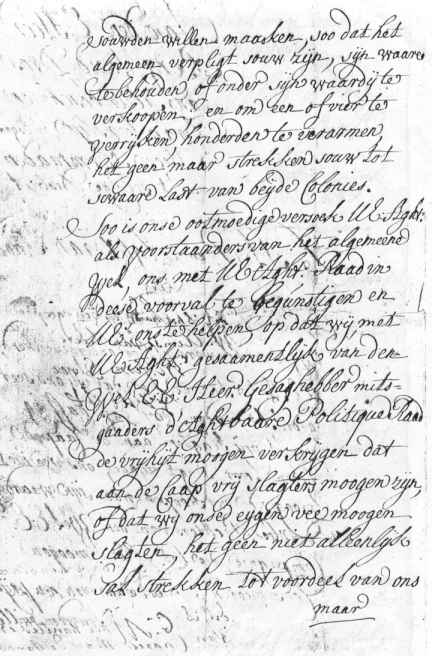 souwden willen maaken, soo dat het
algemeen verpligt souw zijn, sijn waare
te behouden of onder sijn waardij te
verkoopen, en om een of vier te
verrijken, honderden te verarmen,
het geen maar strekken souw tot
sowaare Last van beijde Colonies.
Soo is onse ootmoedige versoek UE: Aght:
als Voorstaanders van het algemeene
Wel, ons met UE Aght: Raad in
deese voorval te begunstigen en
UE: ons te helpen, op dat wij met
UE Aght: gesaamentlijk van den
Wel EE: Heer Gesaghebber mits-
gaaders d'Aghtbaare Politique Raad
de vrijhijt moogen verkrijgen dat
aan de Caap vrij slagters moogen zijn,
of dat wij onse eijgen vee moogen
slagten, het geen niet alleenlijk
sal strekken tot voordeel van ons
maar